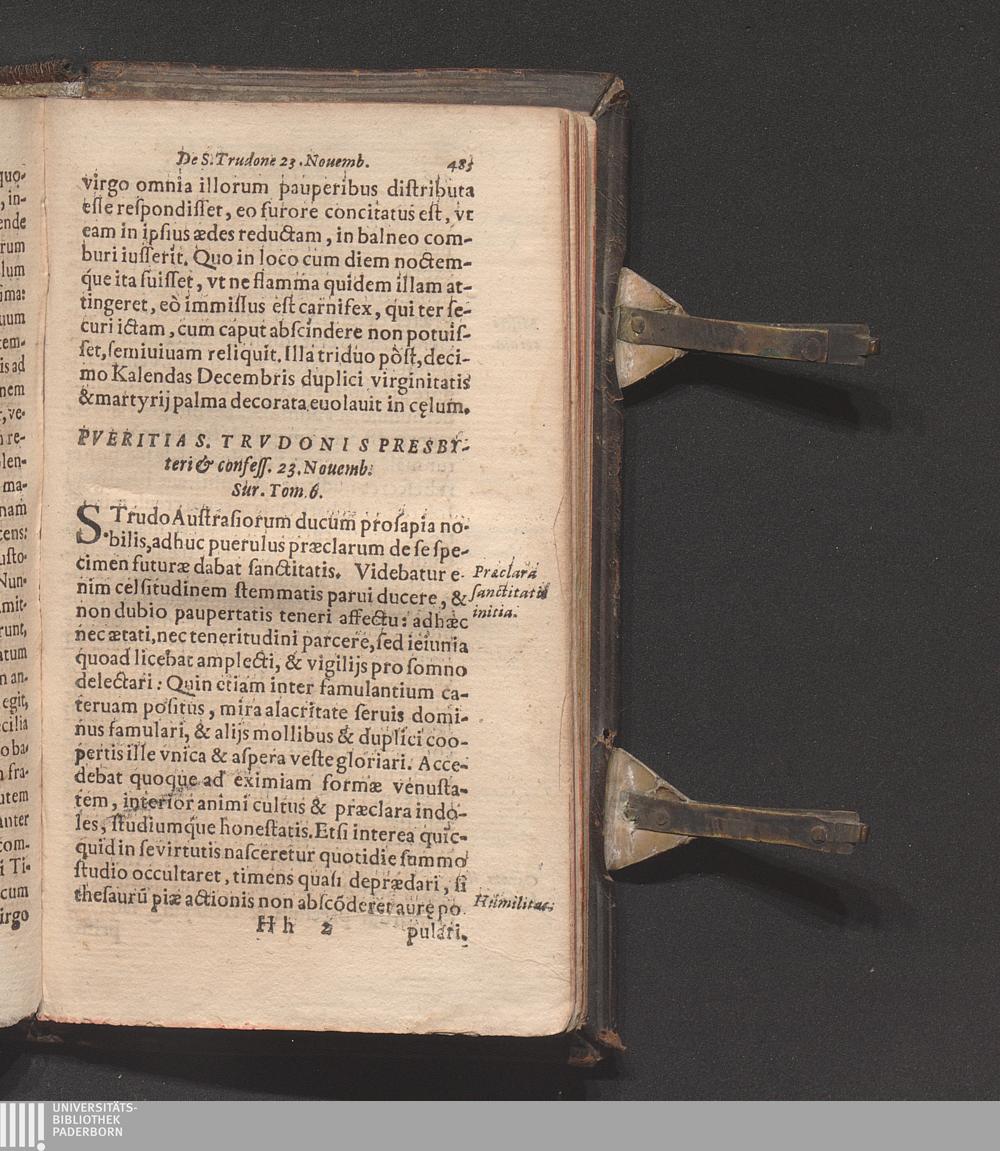 De S. Trudone 23. Nouemb. 483
virgo omnia illorum pauperibus distributa
esse respondisset, eo furore concitatus est, vt
eam in ipsius ædes reductam, in balneo com-
buri iusserit. Quo in loco cum diem noctem-
que ita fuisset, vt ne flamma quidem illam at-
tingeret, eò immissus est carnifex, qui ter se-
curi ictam, cum caput abscindere non potuis-
set, semiuiuam reliquit. Illa triduo pòst, deci-
mo Kalendas Decembris duplici virginitatis
& martyrij palma decorata euolauit in cęlum.
PVERITIA S. TRVDONIS PRESBY-
teri & confess. 23. Nouemb.
Sur. Tom. 6.
S. Trudo Austrasiorum ducum prosapia no-
bilis, adhuc puerulus præclarum de se spe-
cimen futuræ dabat sanctitatis. Videbatur e-
nim celsitudinem stemmatis parui ducere, &
non dubio paupertatis teneri affectu: adhæc
nec ætati, nec teneritudini parcere, sed ieiunia
quoad licebat amplecti, & vigilijs pro somno
delectari: Quin etiam inter famulantium ca-
teruam positus, mira alacritate seruis domi-
nus famulari, & alijs mollibus & duplici coo-
pertis ille vnica & aspera veste gloriari. Acce-
debat quoque ad eximiam formæ venusta-
tem, interior animi cultus & præclara indo-
les, studiumque honestatis. Etsi interea quic-
quid in se virtutis nasceretur quotidie summo
studio occultaret, timens quasi deprædari, si
thesaurū piæ actionis non abscōderet auręˉpo
Hh 2 pulari.
Præclara
sanctitatis
initia.
Humilitas.
quo-
, in-
ende
rum
lum
ima:
uum
tem-
is ad
nem
, ve-
n re-
len-
ma-
nam
cens:
usto-
Nun-
mit-
runt,
atum
n an-
egit,
ecilia
o ba-
n fra-
utem
anter
com-
i Ti-
cum
irgo
UNIVERSITÄTS-
BIBLIOTHEK
PADERBORN